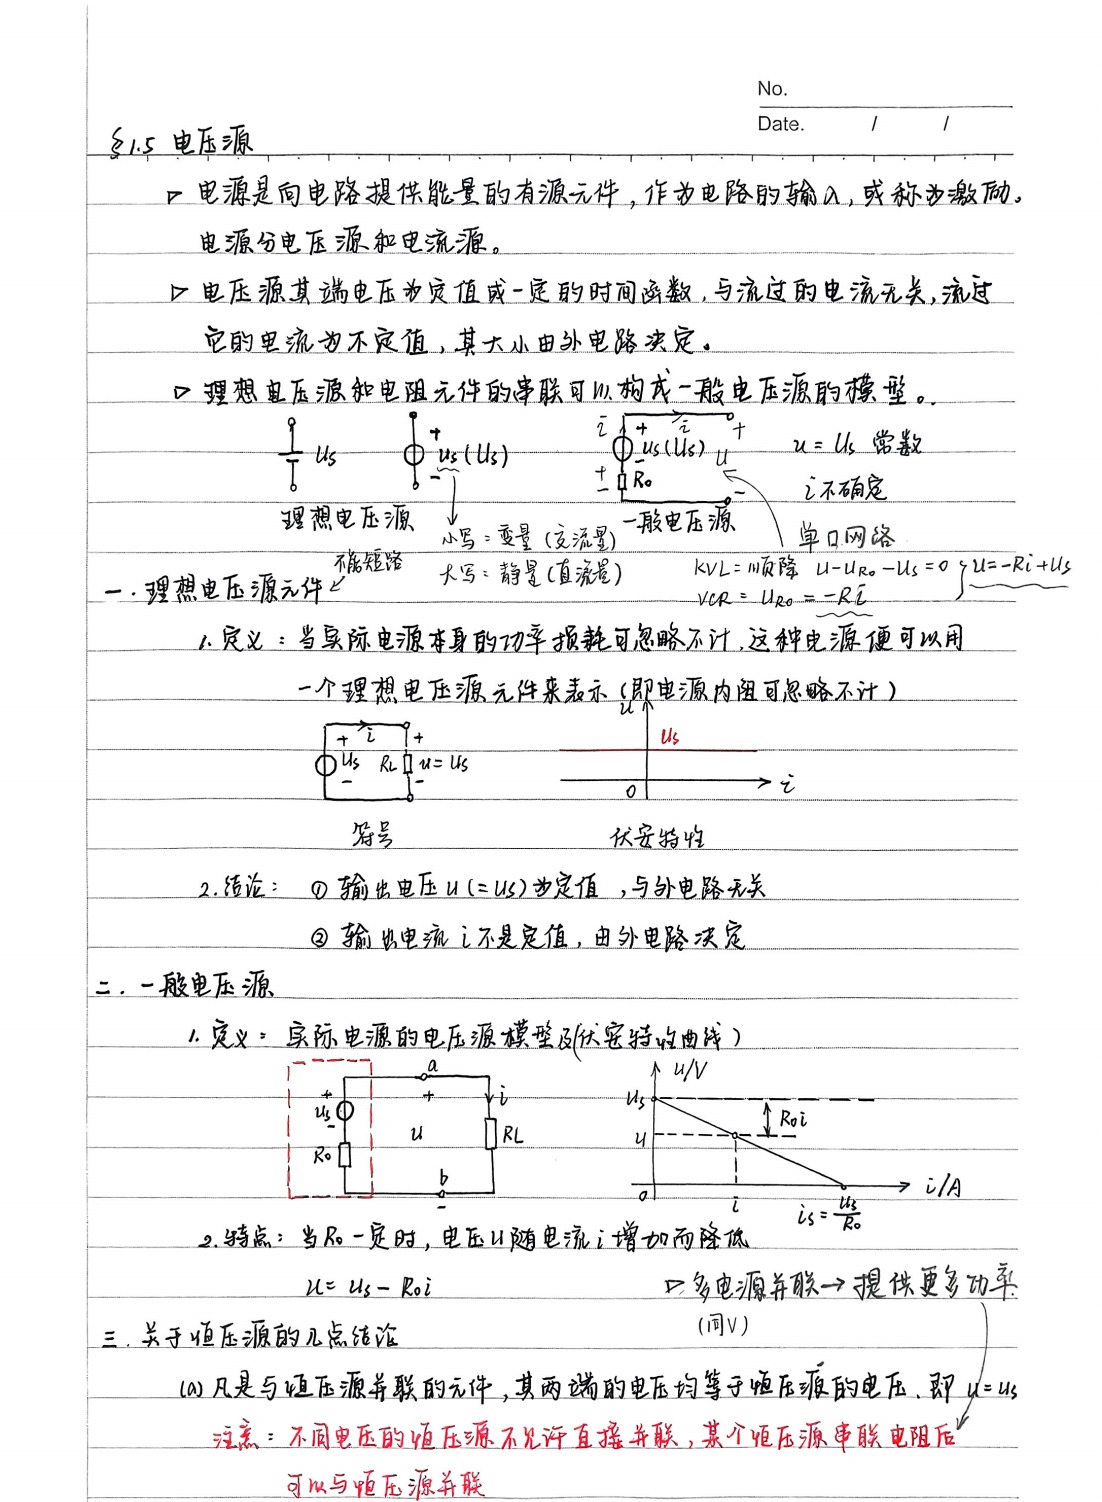 No.
Date. / /
§1.5 电压源
▷ 电源是向电路提供能量的有源元件，作为电路的输入，或称为激励。
电源分电压源和电流源。
▷ 电压源其端电压为定值或一定的时间函数，与流过的电流无关，流过
它的电流为不定值，其大小由外电路决定。
▷ 理想电压源和电阻元件的串联可以构成一般电压源的模型。
Us
+ us (Us) -
i + us (Us) - + R₀ - i + u -
u = Us 常数
i 不确定
理想电压源
一般电压源
单口网络
小写：变量（交流量）
大写：静量（直流量）
KVL：顺降 u-uR₀-Us=0
VCR：uR₀=-Ri
u=-Ri+Us
不能短路
一. 理想电压源元件
1. 定义：当实际电源本身的功率损耗可忽略不计，这种电源便可以用
一个理想电压源元件来表示（即电源内阻可忽略不计）
+ Us - i RL + u=Us -
u Us 0 i
符号
伏安特性
2. 结论： ① 输出电压 u (=Us) 为定值，与外电路无关
② 输出电流 i 不是定值，由外电路决定
二. 一般电压源
1. 定义：实际电源的电压源模型及(伏安特性曲线）
+ Us - R₀ a + u b - i RL
u/V Us u R₀i 0 i i/A
is = Us/R₀
2. 特点：当R₀一定时，电压u随电流i增加而降低
u= us - R₀i
▷ 多电源并联→提供更多功率
(同V)
三. 关于恒压源的几点结论
(a) 凡是与恒压源并联的元件，其两端的电压均等于恒压源的电压，即 u=us
注意：不同电压的恒压源不允许直接并联，某个恒压源串联电阻后
可以与恒压源并联